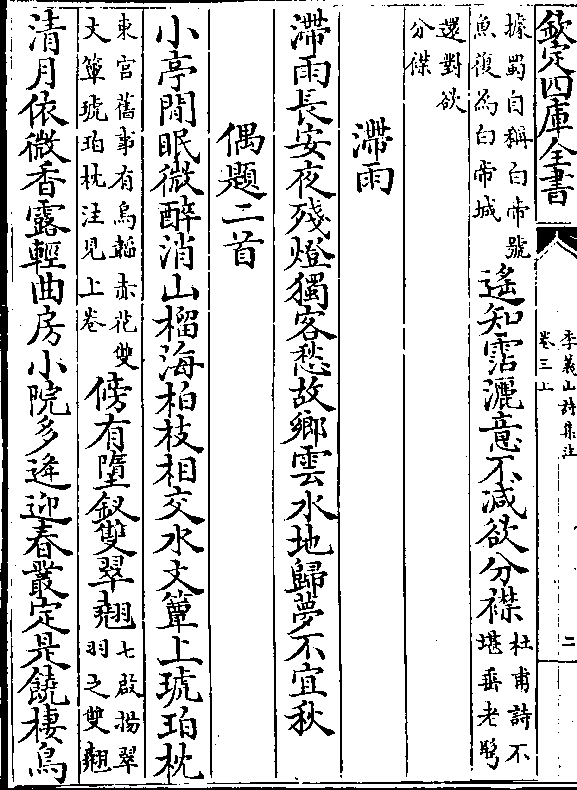 欽定四庫全書
李義山詩集注
卷三上
二
據蜀自稱白帝號
魚復為白帝城
遙知霑灑意不減欲分襟
杜甫詩不
堪垂老鬓
還對欲
分襟
滯雨
滯雨長安夜殘燈獨客愁故鄉雲水地歸夢不宜秋
偶題二首
小亭閒眠微醉消山榴海柏枝相交水文簟上琥珀枕
東宮舊事有烏韜赤花雙
文簟琥珀枕注見上卷
傍有墮釵雙翠翹
七啟揚翠
羽之雙翹
清月依微香露輕曲房小院多逢迎春叢定是饒棲鳥